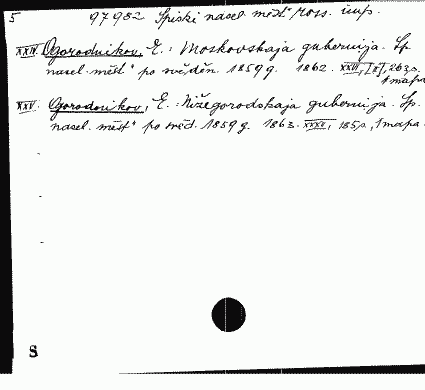 5 97982 Spiski nasel. měst" ross. imp.
XXIV. Ogorodnikov, E.: Moskovskaja gubernija. Sp.
nasel. měst" po svěděn. 1859 g. 1862. XVII, [2], 263 s.
1 mapa
XXV. Gorodnikov, E.: Nižegorodskaja gubernija. Sp.
nasel. měst" po svěd. 1859 g. 1863. XXXI, 185 s, 1 mapa.
S